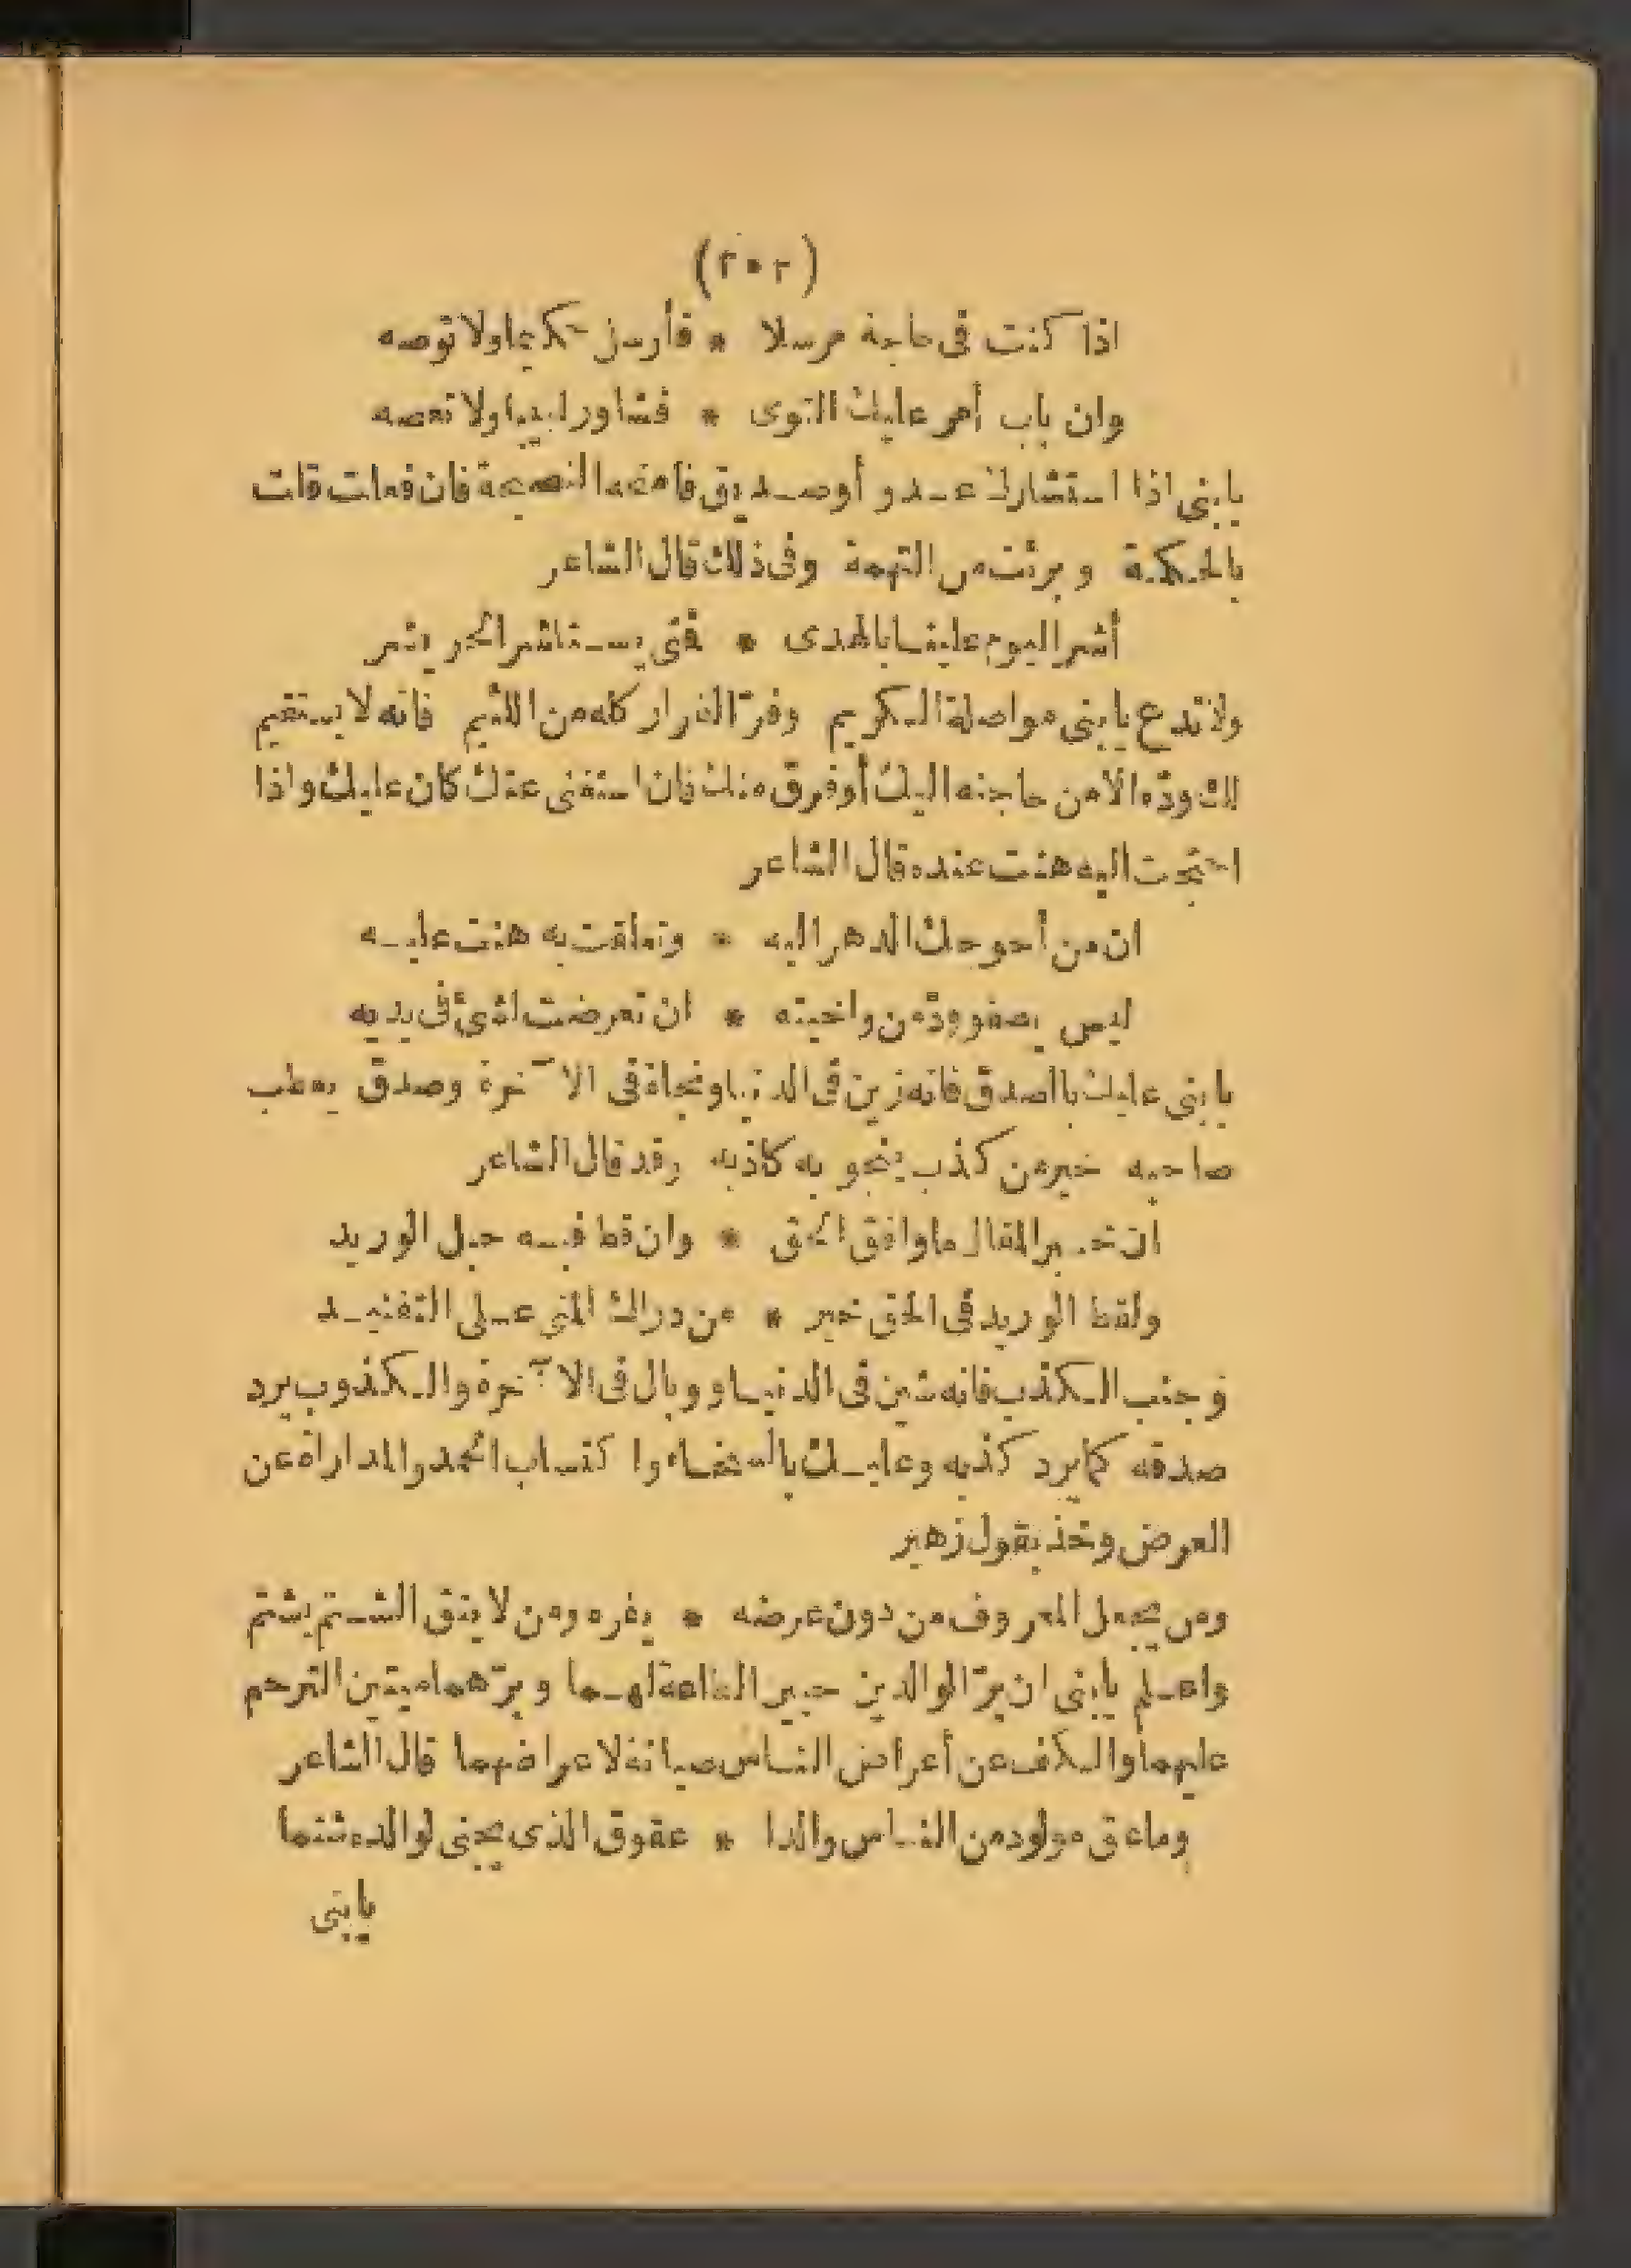 (٢٠٢)
اذا كنت فى حاجة مرسلا * فأرسل حكيما ولا توصه
وان باب أمر عليك التوى * فشاور لبيبا ولا تعصه
يابنى اذا استشارك عدو أو صديق فامحضه النصيحة فان فعلت قلت
بالحكمة وبرئت من التهمة وفى ذلك قال الشاعر
أشر اليوم علينا بالهدى * فتى يستاشر الحر يشر
ولا تدع يابنى مواصلة الكريم وفرّ الفرار كله من اللئيم فانه لا يستقيم
لك ودّه الا من حاجته اليك أو فرق منك فان استغنى عنك كان عليك واذا
احتجت اليه هنت عنده قال الشاعر
ان من أحوجك الدهر اليه * وتعلقت به هنت عليه
ليس يصفو ودّ من واخيته * ان تعرضت لشئ فى يديه
يابنى عليك بالصدق فانه زين فى الدنيا ونجاة فى الآخرة وصدق يعطب
صاحبه خير من كذب ينجو به كاذبه وقد قال الشاعر
ان خير المقال ما وافق الحق * وان قط فيه حبل الوريد
ولقط الوريد فى الحق خير * من دراك المنى على التفنيد
وجنب الكذب فانه شين فى الدنيا ووبال فى الآخرة والكذوب يرد
صدقه كما يرد كذبه وعليك بالسخاء واكتساب الحمد والمداراة عن
العرض وخذ بقول زهير
ومن يجعل المعروف من دون عرضه * يفره ومن لا يتق الشتم يشتم
واعلم يابنى ان برّ الوالدين حيين الطاعة لهما وبرّهما ميتين الترحم
عليهما والكف عن أعراض الناس صيانة لاعراضهما قال الشاعر
وما عق مولود من الناس والدا * عقوق الذى يجنى لوالده شتما
يابنى